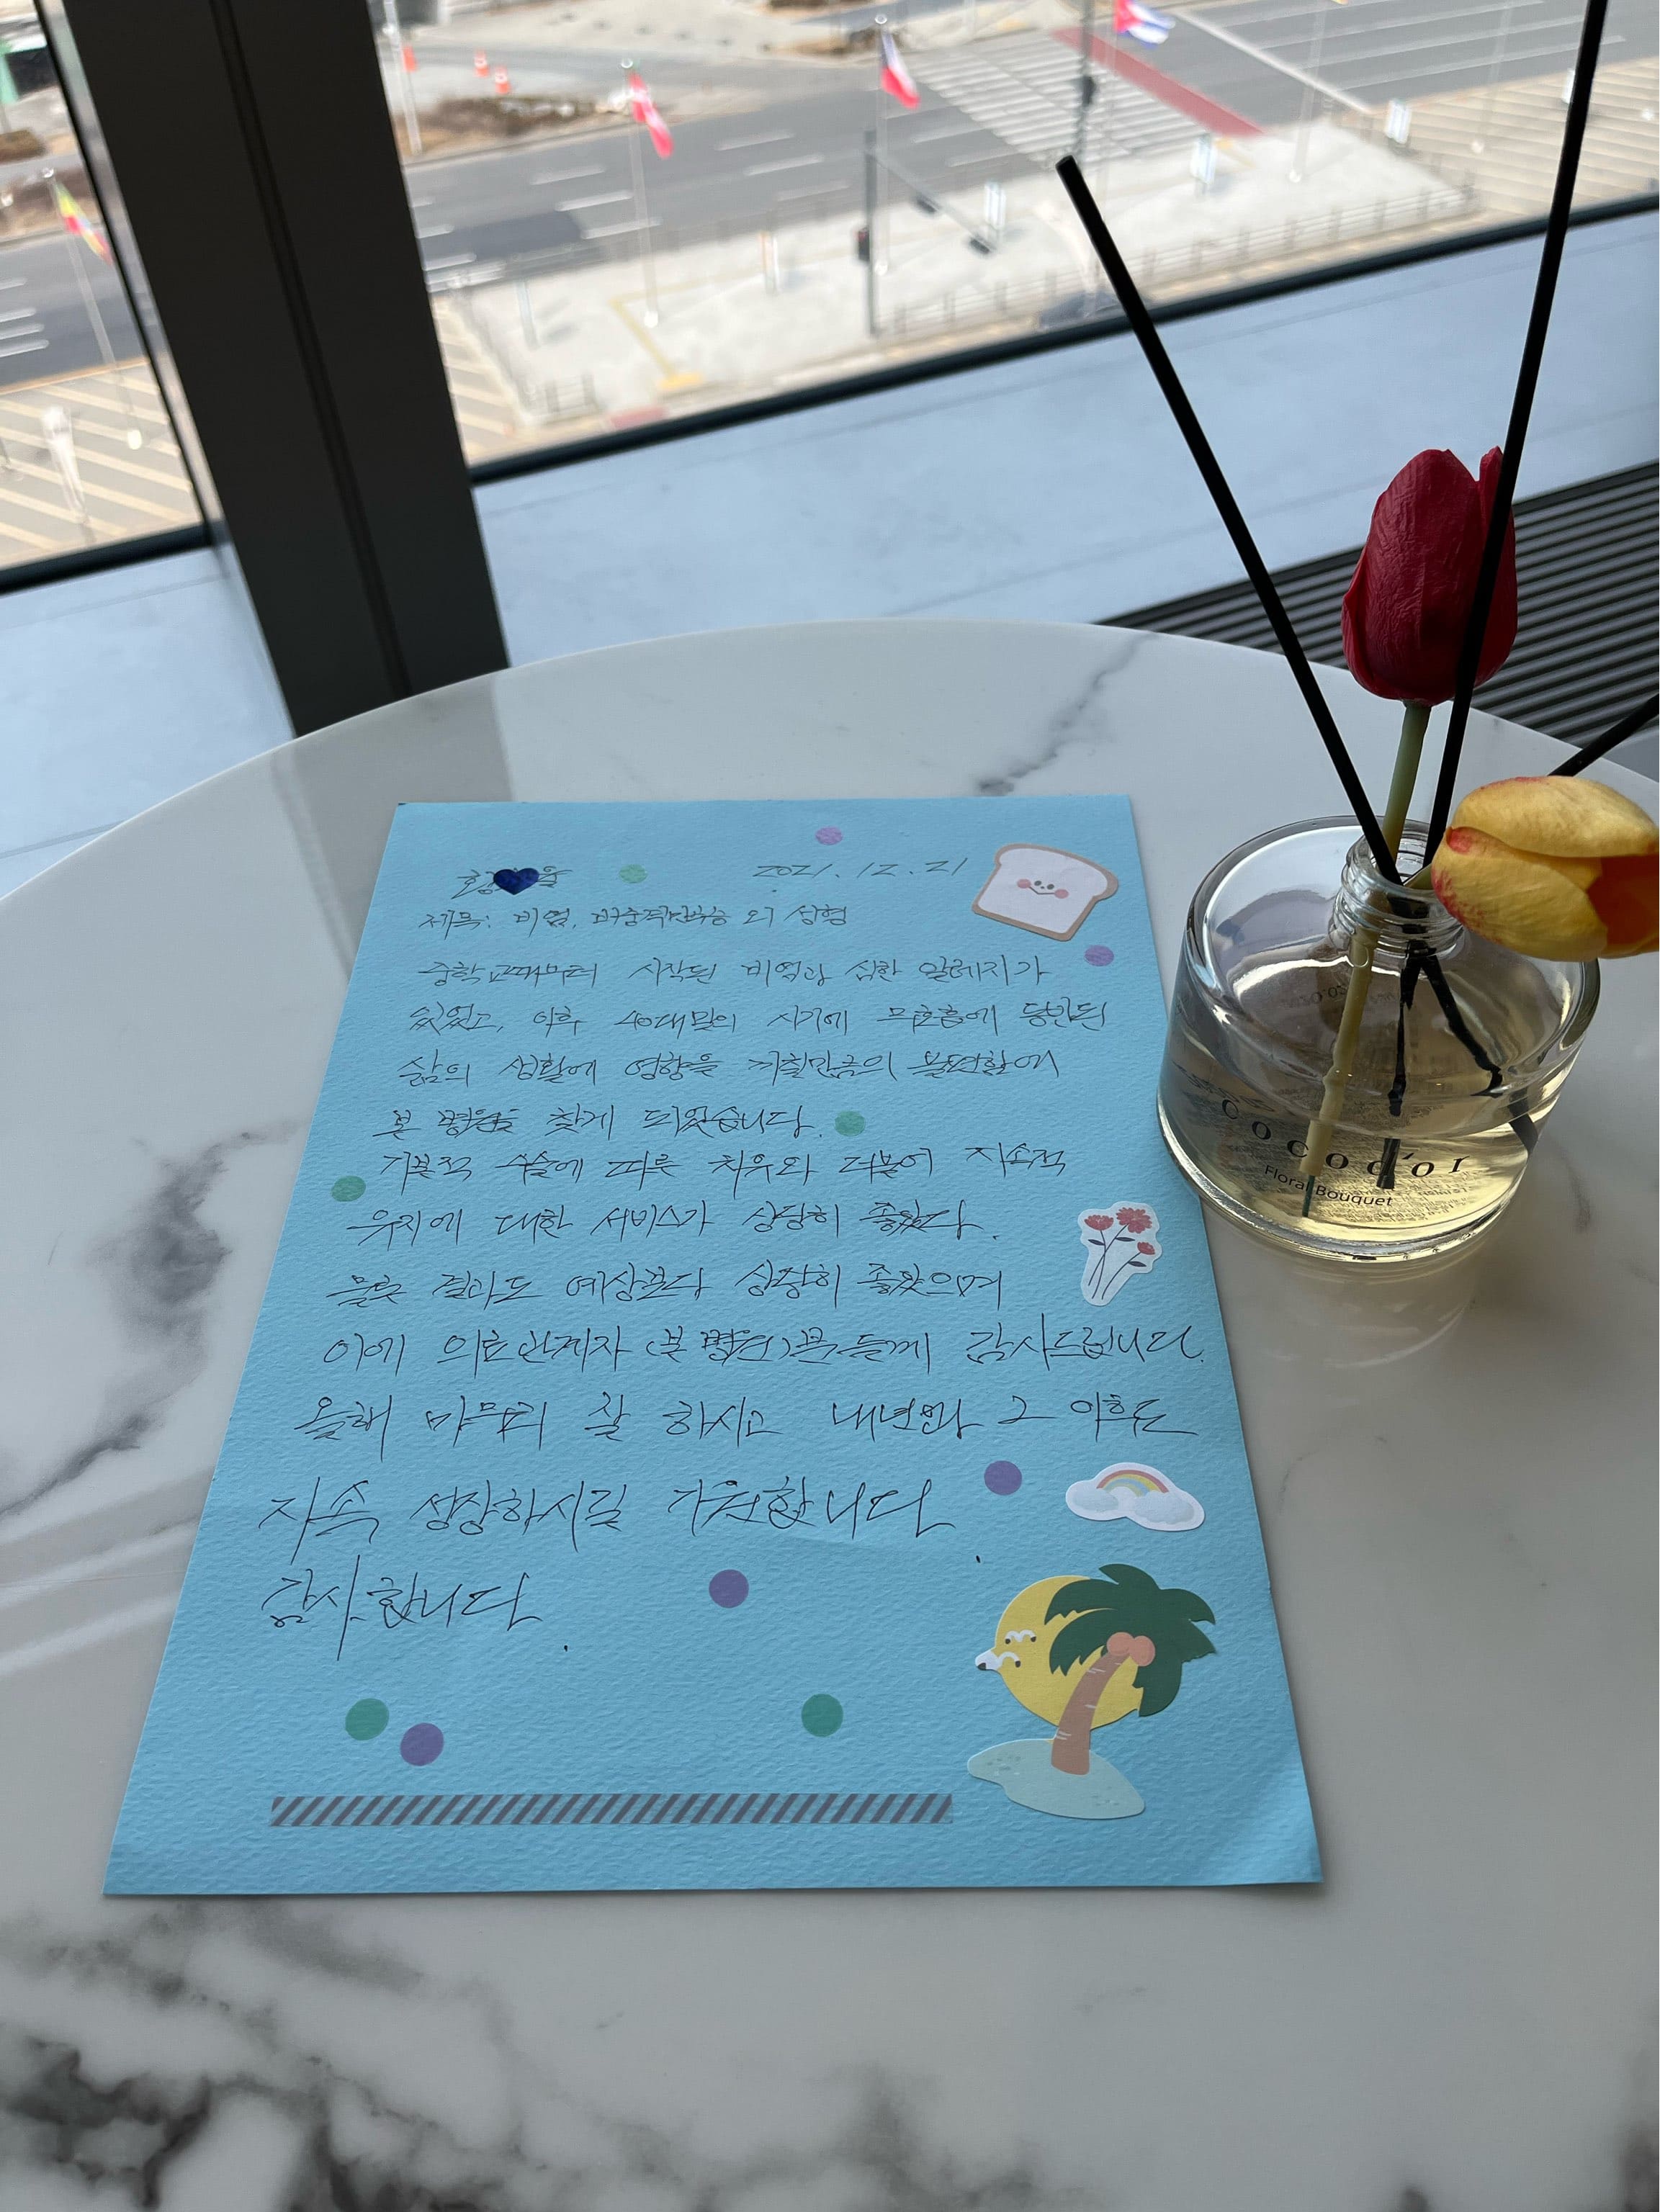 2021.12.21
제목: 비염, 비중격만곡증 외 성형
중학교때부터 시작된 비염과 심한 알레지가
있었고, 이후 40대말의 시기에 무호흡에 동반된
삶의 생활에 영향을 끼칠만큼의 불편함에
본 병원을 찾게 되었습니다.
기본적 수술에 따른 치유와 더불어 지속적
유지에 대한 서비스가 상당히 좋았다.
물론 결과도 예상보다 상당히 좋았으며
이에 의료관계자 (본 병원)분들께 감사드립니다.
올해 마무리 잘 하시고 내년과 그 이후도
지속 성장하시길 기원합니다.
감사합니다.
cocod'or
Floral Bouquet